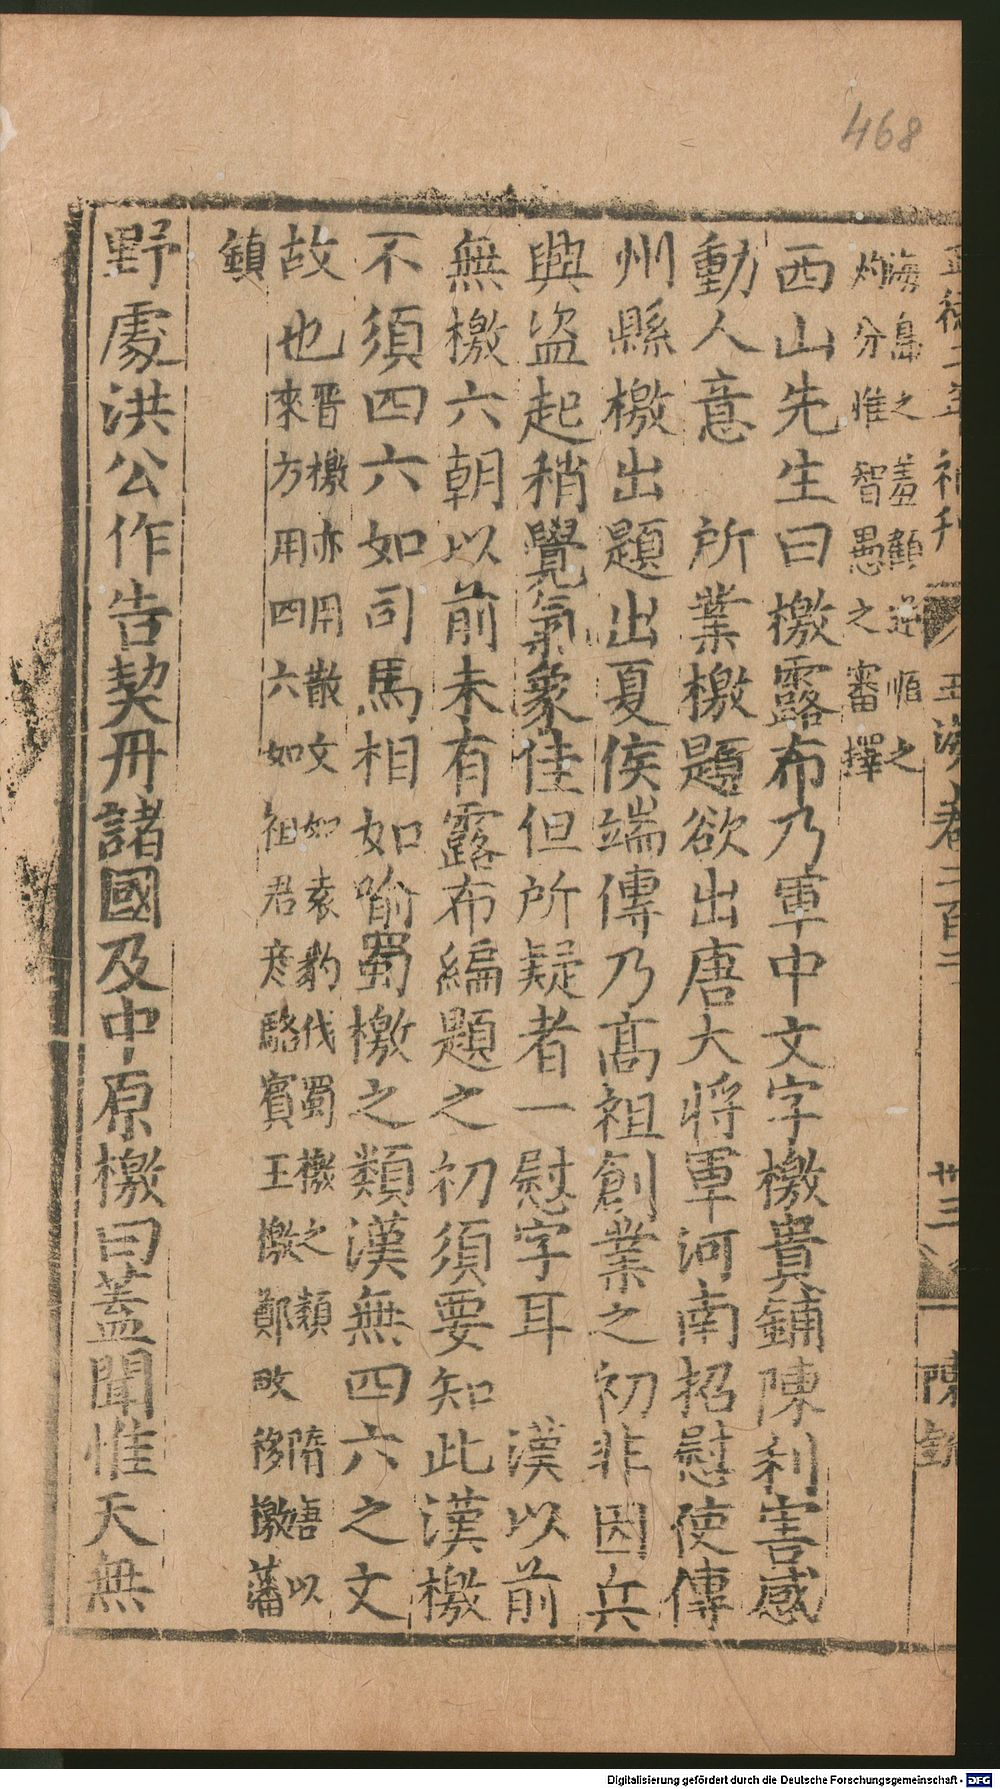 468
正德二年補刊 玉海卷二百三 廿三 陳銳
海島之羞顧逆順之
灼分惟智愚之審擇
西山先生曰檄露布乃軍中文字檄貴鋪陳利害感
動人意 所業檄題欲出唐大將軍河南招慰使傳
州縣檄出題出夏侯端傳乃高祖創業之初非因兵
興盜起稍覺氣象佳但所疑者一慰字耳 漢以前
無檄六朝以前未有露布編題之初須要知此漢檄
不須四六如司馬相如喻蜀檄之類漢無四六之文
故也晋檄亦用散文如袁豹伐蜀檄之類隋唐以
來方用四六如祖君彦駱賓王檄鄭畋移檄藩
鎮
野處洪公作告契丹諸國及中原檄曰蓋聞惟天無
Digitalisierung gefördert durch die Deutsche Forschungsgemeinschaft - DFG